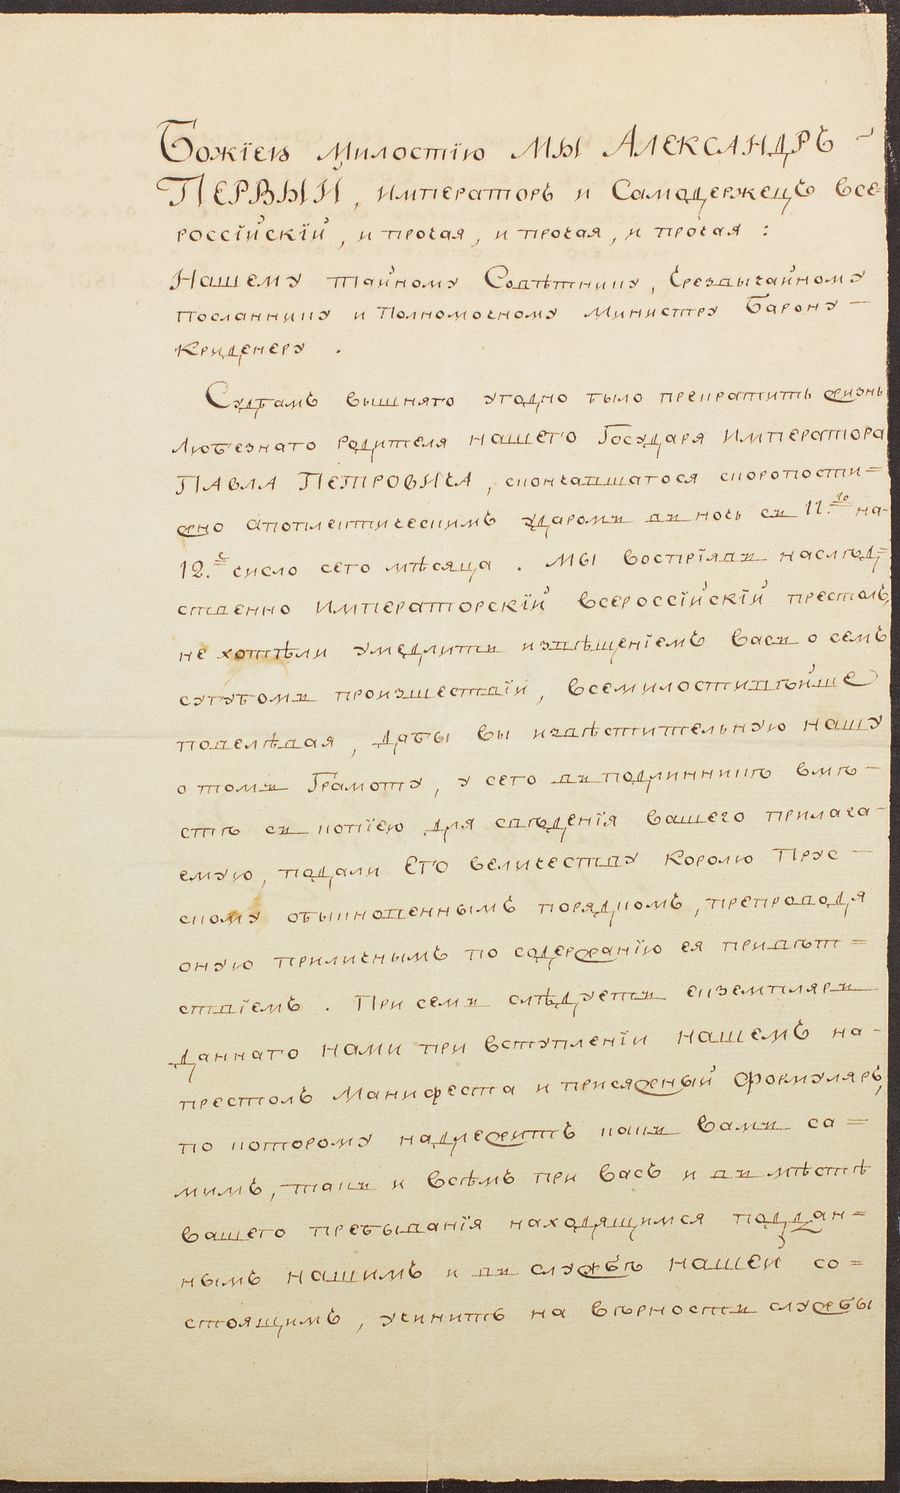 Божіею Милостію МЫ АЛЕКСАНДРЪ
ПЕРВЫЙ, Императоръ и Самодержецъ Все-
россійскій, и прочая, и прочая, и прочая:
Нашему Тайному Совѣтнику, Чрезвычайному
Посланнику и Полномочному Министру Барону —
Криденеру.
Судбамъ вышняго угодно было прекратить жизнь
Любезнаго Родителя нашего Государя Императора
ПАВЛА ПЕТРОВИЧА, скончавшагося скоропости-=
жно апоплектическимъ ударомъ въ ночь съ 11.го на-
12.е число сего мѣсяца. МЫ воспріявъ наслѣд-=
ственно Императорскій Всероссійскій престолъ,
не хотѣли умедлить извѣщеніемъ васъ о семъ
сугубомъ произшествіи, всемилостивѣйше
повелѣвая, дабы вы извѣстительную нашу
о томъ Грамоту, у сего въ подлинникѣ вмѣ-
стѣ съ копіею для свѣденія вашего прилага-
емую, подали ЕГО Величеству Королю Прус-
скому обыкновеннымъ порядкомъ, препроводя
оную приличнымъ по содержанію ея привѣт-=
ствіемъ. При семъ слѣдуетъ екземпляръ
даннаго нами при вступленіи нашемъ на-
престолъ Манифеста и присяжный формуляръ,
по которому надлежитъ какъ вамъ са-=
мимъ, такъ и всѣмъ при васъ и въ мѣстѣ
вашего пребыванія находящимся поддан-=
нымъ нашимъ и въ службѣ нашей со-=
стоящимъ, учинить на вѣрность службы